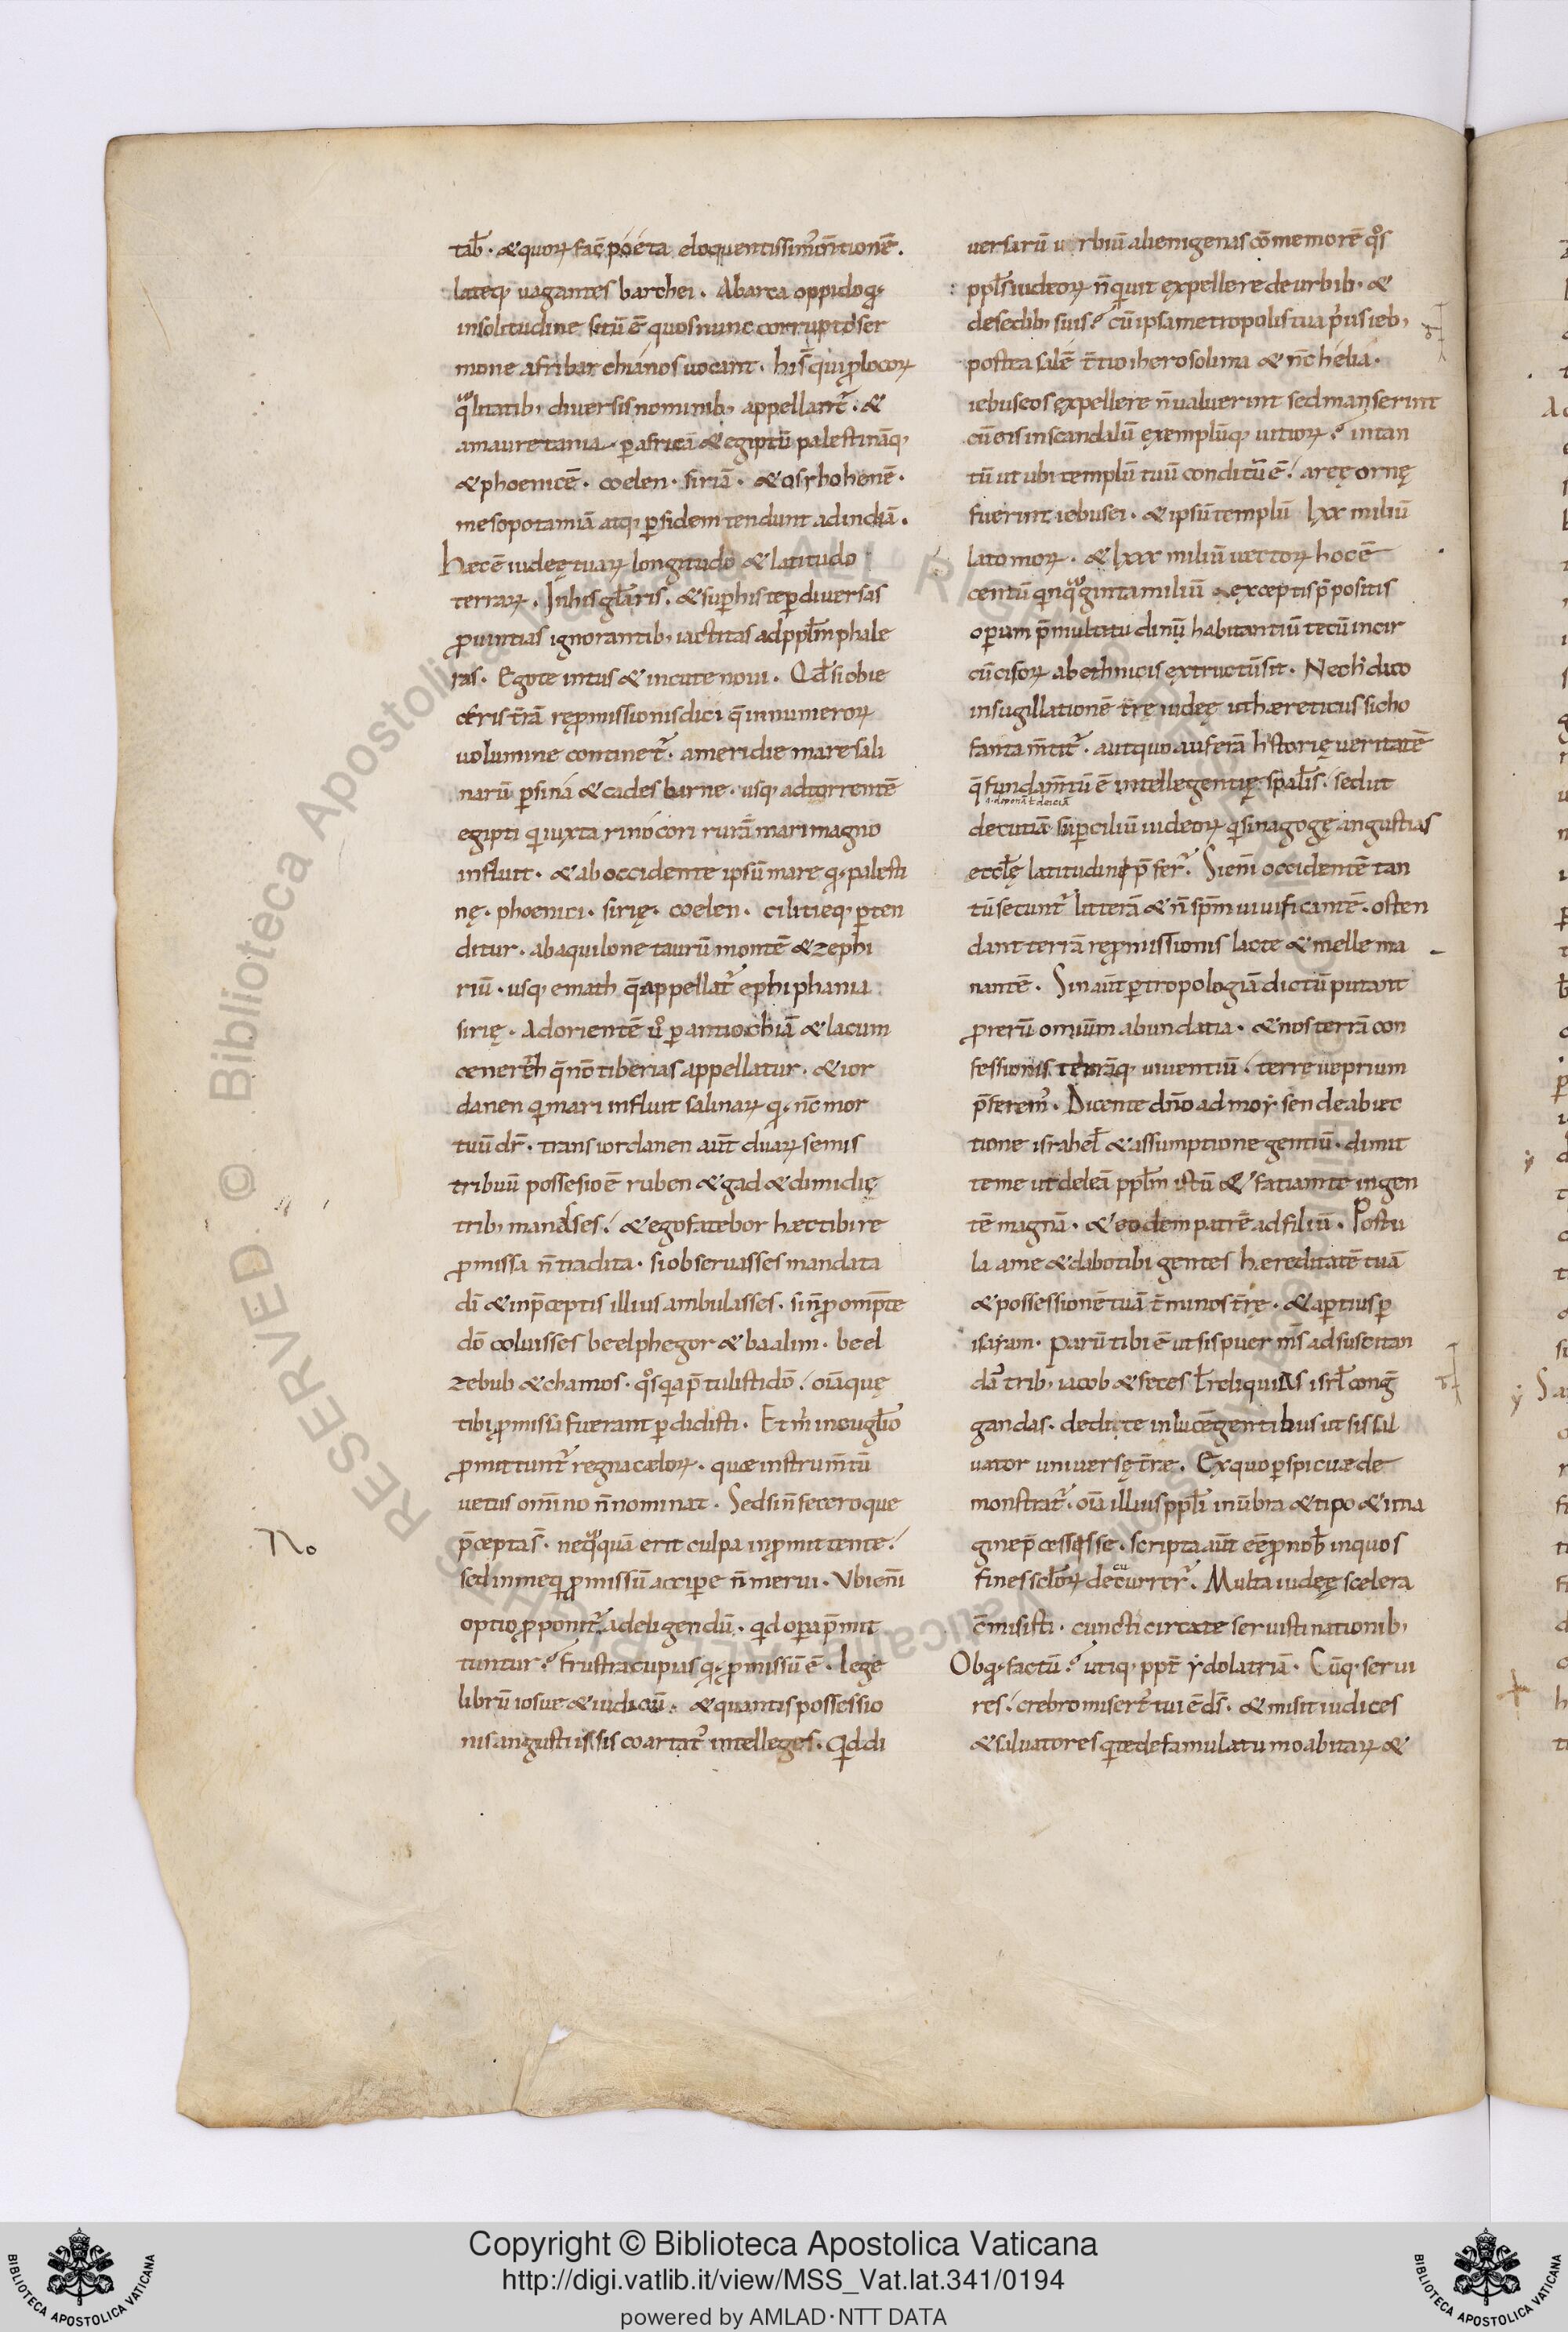 tab̄ · & quoꝝ facē poeta eloquentissim' m̄tionē .
lateq; uagantes barchei . Abarca oppido q;
insolitudine sitū ē quos nunc corrupto ser
mone afri barchianos uocant . hi s̄ qui p locoꝝ
q̊litatib; diuersis nominib; appellant̄ . &
amauretania p africā & egiptū palestināq;
& phoenicē . coelen . siriā . & osrhohenē .
mesopotamiā atq; psidem tendunt ad indiā .
Hæc ē iudeę tuaꝝ longitudo & latitudo
terraꝝ . In his gl̄aris . & sup his te p diuersas
puintias ignorantib; iactitas ad ppl̄m phale
ras . Ego te intus & incute noui . Qd̄ si obie
ceris t̄rā rep̄missionis dici q̄ in numeroꝝ
uolumine continet̄ . ameridie mare sali
narū p sina & cades barne . usq; ad torrentē
egipti q iuxta rinocorirurā mari magno
influit . & ab occidente ipsū mare q; palesti
nę . phoenici . sirię . coelen . ciliciæq; pten
ditur . ab aquilone taurū montē & zephi
riū . usq; emath q̄ appellat̄ ephiphania
sirię . Ad orientē u° p antiochiā & lacum
cenereth q̄ nc̄ tiberias appellatur . & ior
danen q mari influit salinaꝝ q; nc̄ mor
tuū dr̄ . trans iordanen aūt duaꝝ semis
tribuū possesio ē ruben & gad & dimidię
trib; manasses . & ego fatebor hæc tibi re
pmissa n̄ tradita . si obseruasses mandata
dī & inp̄ceptis illius ambulasses . si n̄ p omp̄te
dō coluisses beelphegor & baalim . beel
zebub & chamos . q°s qa p̄tulisti dō . oīa quę
tibi pmissa fuerant pdidisti . Et m̄ in eugl̄io
pmittunt̄ regna cæloꝝ . quæ instrum̄tū
uetus omīno n̄ nominat . Sed si n̄ fecero que
No
p̄cepta s̄ . neq̊quā erit culpa inpmittente .
sed in me q pmissū accipe n̄ merui . Vbi enī
optio pponit̄ ad eligendū . qd opa p̄mit
tuntur . frustra cupis q; pmissū ē . lege
librū iosue & iudicū . & quantis possessio
nis angustiis sis coartat̄ intelleges . Qd di
uersarū urbiū alienigenas cōmemorē q°s
ppl̄s iudeoꝝ n̄ quit expellere de urbib; &
desedib; suis . cū ipsa metropolis tua p̄us ieb;
postea salē t̄tio iherosolima & nc̄ helia .
iebuseos expellere n̄ ualuerint sed manserint
cū eis inscandalū exemplūq; uitioꝝ . in tan
tū ut ubi templū tuū conditū ē . areę ornę
fuerint iebusei . & ipsū templū lxx miliū
latomoꝝ . & lxxx miliū uectoꝝ hoc ē
centū qnq̊ginta miliū exceptis p̄positis
operum p̄ multitudinū habitantiū tecū incir
cūcisoꝝ ab ethnicis extructū sit . Nec h̄ dico
insugillationē t̄rę iudeę ut hæreticus sicho
fanta m̄tit̄ . aut quo auferā hstorię ueritatē
q̄ fundam̄tū ē intellegentię spalis . sed ut
decutiā supciliū iudeoꝝ q sinagogę angustias
eccl̄ę latitudini p̄fer̄ . Si enī occidentē tan
tū secunt̄ litterā & n̄ spm̄ uiuificantē . osten
dant terrā rep̄missionis lacte & melle ma
nantē . Sin aūt p tropologiā dictū putant
p rerū omniūm abundatia . & nos terrā con
fessionis terrāq; uiuentiū . terrę ueprium
p̄ferem' . Dicente dn̄o ad moysen de abiec
tione israhel̄ & assumptione gentiū . dimit
te me ut deleā ppl̄m istū & faciam te in gen
tē magnā . & eodem patrē ad filiū . Postu
la ame & dabo tibi gentes hæreditatē tuā
& possessionē tuā t̄minos t̄rę . & aptius p
isayam . Parū tibi ē ut sis puer m̄s ad suscitan
da' trib; iacob & feces ł reliquias isrl̄ conḡ
gandas . dedi te in lucē gentibus ut sis sal
uator uniuersę t̄ræ . Ex quo pspicuæ de
monstrat̄ . oīa illius ppl̄i in ūbra & tipo & ima
gine p̄cessisse . scripta aūt eē p nob̄ in quos
fines scl̄oꝝ decurrer̄ . Multa iudeę scelera
c̄misisti . cuncti circa te seruisti nationib;
Ob q; factū . utiq; ppt̄ ydolatriā . Cūq; serui
res . crebro misert' tui ē ds̄ . & misit iudices
& saluatores q te de famulatu moabitaꝝ &
Copyright © Biblioteca Apostolica Vaticana
http://digi.vatlib.it/view/MSS_Vat.lat.341/0194
powered by AMLAD·NTT DATA
BIBLIOTECA APOSTOLICA VATICANA
BIBLIOTECA APOSTOLICA VATICANA